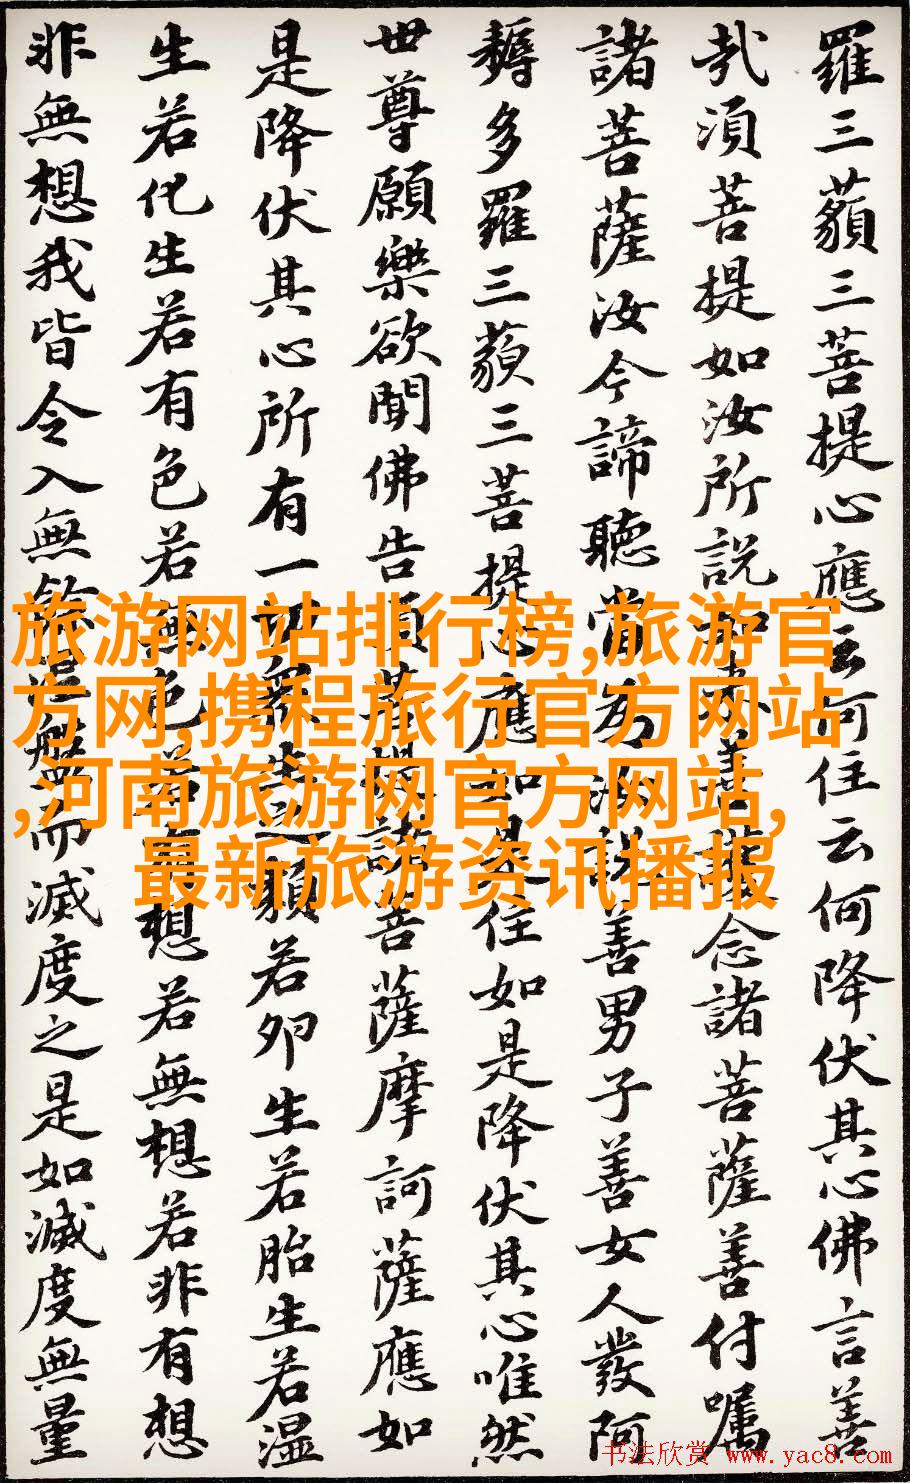 羅三藐三菩提心應云何住云何降伏其心佛言善
哉須菩提如汝所説如來善護念諸菩薩善付囑
諸菩薩汝今諦聽當為汝說善男子善女人發阿
耨多羅三藐三菩提心應如是住如是降伏其心唯然
世尊願樂欲聞佛告須菩提諸菩薩摩訶薩應如
是降伏其心所有一切衆生之類若卵生若胎生若湿
生若化生若有色若無色若有想若無想若非有想
非無想我皆令入無餘涅槃而滅度之是如滅度無量
旅游网站排行榜,旅游官
方网,携程旅行官方网站
,河南旅游网官方网站,
最新旅游资讯播报
书法欣赏 www.yac8.com